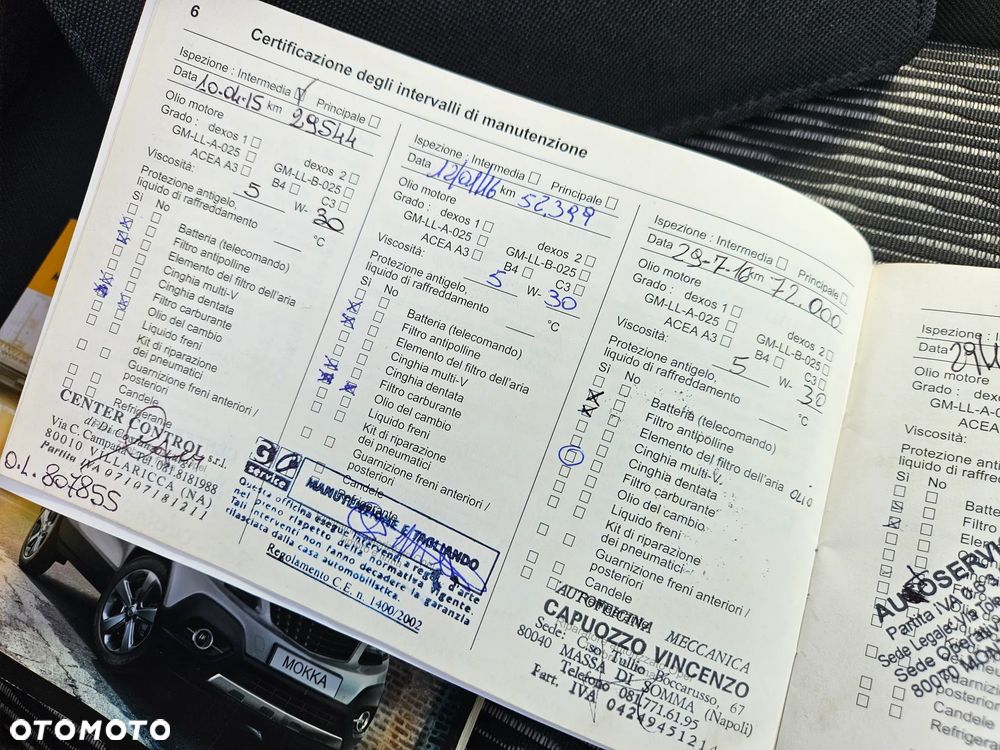 6
Certificazione degli intervalli di manutenzione
Ispezione : Intermedia Principale
Data 10-04-15 km 29544
Olio motore
Grado : dexos 1 dexos 2
GM-LL-A-025 GM-LL-B-025
ACEA A3 B4 C3
Viscosità: 5 W- 30
Protezione antigelo,
liquido di raffreddamento °C
Sì No
Batteria (telecomando)
Filtro antipolline
Elemento del filtro dell'aria
Cinghia multi-V
Cinghia dentata
Filtro carburante
Olio del cambio
Liquido freni
Kit di riparazione
dei pneumatici
Guarnizione freni anteriori /
posteriori
Candele
Refrigerante
CENTER CONTROL s.r.l.
Via C. Campana Tel. 081.8181988
80010 VILLARICCA (NA)
Partita IVA 07107181211
O.L. 80785S
Ispezione : Intermedia Principale
Data 12/01/16 km 52.399
Olio motore
Grado : dexos 1 dexos 2
GM-LL-A-025 GM-LL-B-025
ACEA A3 B4 C3
Viscosità: 5 W- 30
Protezione antigelo,
liquido di raffreddamento °C
Sì No
Batteria (telecomando)
Filtro antipolline
Elemento del filtro dell'aria
Cinghia multi-V
Cinghia dentata
Filtro carburante
Olio del cambio
Liquido freni
Kit di riparazione
dei pneumatici
Guarnizione freni anteriori /
posteriori
Candele
Refrigerante
service
MANUTENZIONE E TAGLIANDO
Questa officina esegue interventi a regola d'arte
nel pieno rispetto della normativa vigente.
Tali interventi non fanno decadere la garanzia
rilasciata dalla casa automobilistica.
Regolamento C.E. n. 1400/2002
Ispezione : Intermedia Principale
Data 29-7-16 km 72.000
Olio motore
Grado : dexos 1 dexos 2
GM-LL-A-025 GM-LL-B-025
ACEA A3 B4 C3
Viscosità: 5 W- 30
Protezione antigelo,
liquido di raffreddamento °C
Sì No
Batteria (telecomando)
Filtro antipolline
Elemento del filtro dell'aria OLIO
Cinghia multi-V
Cinghia dentata
Filtro carburante
Olio del cambio
Liquido freni
Kit di riparazione
dei pneumatici
Guarnizione freni anteriori /
posteriori
Candele
AUTOFFICINA MECCANICA
CAPUOZZO VINCENZO
Sede: C.so Tullio Boccarusso, 67
80040 MASSA DI SOMMA (Napoli)
Telefono 081/771.61.95
Part. IVA
Ispezione :
Data
Olio motore
Grado : dexos
GM-LL-A-0
ACEA
Viscosità:
Protezione antigelo,
liquido di raffredda
Sì No
Batte
Filtro
Eleme
AUTOSERVI
Partita IVA
Sede Legale: Via
Sede Opera
80070 MON
Guarnizi
posteriori
Candele
Refrigera
MOKKA
OTOMOTO